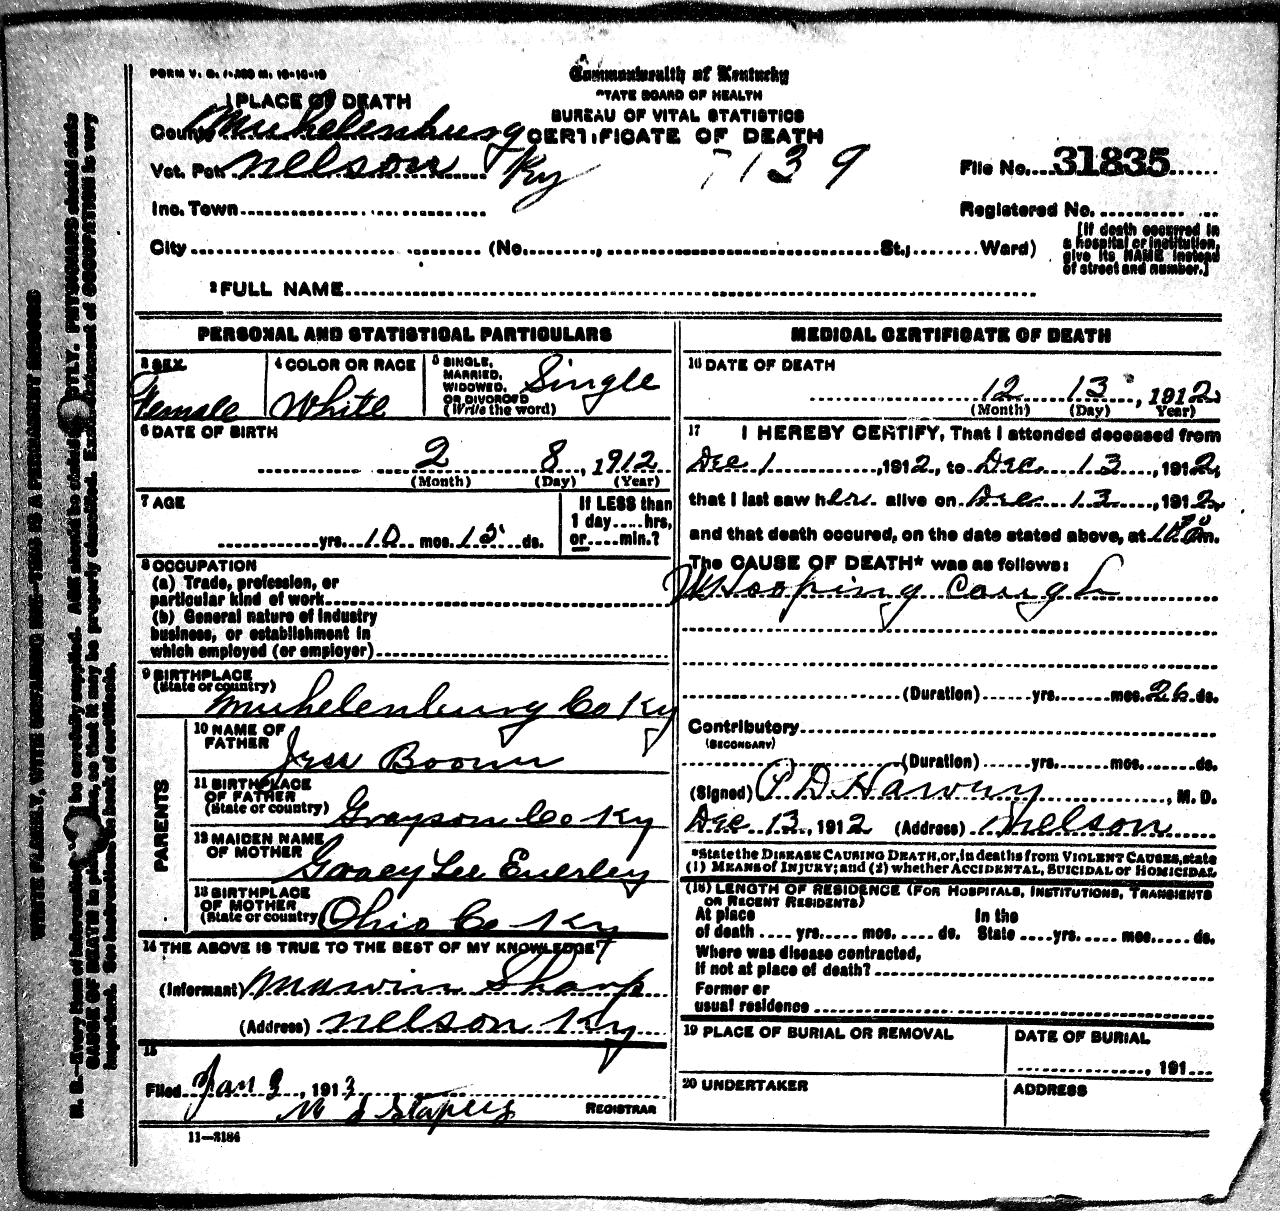 Commonwealth of Kentucky
STATE BOARD OF HEALTH
BUREAU OF VITAL STATISTICS
CERTIFICATE OF DEATH
1 PLACE OF DEATH
County Muhelenburg
Vot. Pct. Nelson Ky
7139
File No. 31835
Inc. Town
Registered No.
City (No. , St.; Ward)
[If death occurred in
a hospital or institution,
give its NAME instead
of street and number.]
2 FULL NAME
PERSONAL AND STATISTICAL PARTICULARS
3 SEX
Female
4 COLOR OR RACE
White
5 SINGLE,
MARRIED,
WIDOWED,
OR DIVORCED
(Write the word)
Single
6 DATE OF BIRTH
2 8, 1912
(Month) (Day) (Year)
7 AGE
yrs. 10 mos. 15 ds.
If LESS than
1 day.....hrs,
or.....min.?
8 OCCUPATION
(a) Trade, profession, or
particular kind of work
(b) General nature of industry
business, or establishment in
which employed (or employer)
9 BIRTHPLACE
(State or country)
Muhelenburg Co Ky
PARENTS
10 NAME OF
FATHER
Jess Boown
11 BIRTHPLACE
OF FATHER
(State or country)
Grayson Co Ky
12 MAIDEN NAME
OF MOTHER
Lee Everley
13 BIRTHPLACE
OF MOTHER
(State or country)
Ohio Co Ky
14 THE ABOVE IS TRUE TO THE BEST OF MY KNOWLEDGE
(Informant) Marvin Sharp
(Address) Nelson Ky
15
Filed Jan 3, 1913
M S Staples
REGISTRAR
11—3184
MEDICAL CERTIFICATE OF DEATH
16 DATE OF DEATH
12 13, 1912
(Month) (Day) Year)
17 I HEREBY CERTIFY, That I attended deceased from
Dec 1, 1912, to Dec. 13, 1912,
that I last saw her alive on Dec 13, 1912,
and that death occured, on the date stated above, at m.
The CAUSE OF DEATH* was as follows:
Whooping Cough
(Duration) yrs. mos. 26 ds.
Contributory
(SECONDARY)
(Duration) yrs. mos. ds.
(Signed) P D Harvey, M. D.
Dec 13, 1912 (Address) Nelson
*State the DISEASE CAUSING DEATH, or, in deaths from VIOLENT CAUSES, state
(1) MEANS OF INJURY; and (2) whether ACCIDENTAL, SUICIDAL or HOMICIDAL
(18) LENGTH OF RESIDENCE (FOR HOSPITALS, INSTITUTIONS, TRANSIENTS
OR RECENT RESIDENTS)
At place
of death .... yrs. .... mos. .... ds.
In the
State .... yrs. .... mos. .... ds.
Where was disease contracted,
if not at place of death?
Former or
usual residence
19 PLACE OF BURIAL OR REMOVAL
DATE OF BURIAL
, 191
20 UNDERTAKER
ADDRESS
WRITE PLAINLY, WITH UNFADING INK—THIS IS A PERMANENT RECORD
N. B.—Every item of information be carefully supplied. AGE should be stated EXACTLY. PHYSICIANS should state
CAUSE OF DEATH in plain terms, so that it may be properly classified. Exact statement of OCCUPATION is very
important. See instructions on back of certificate.